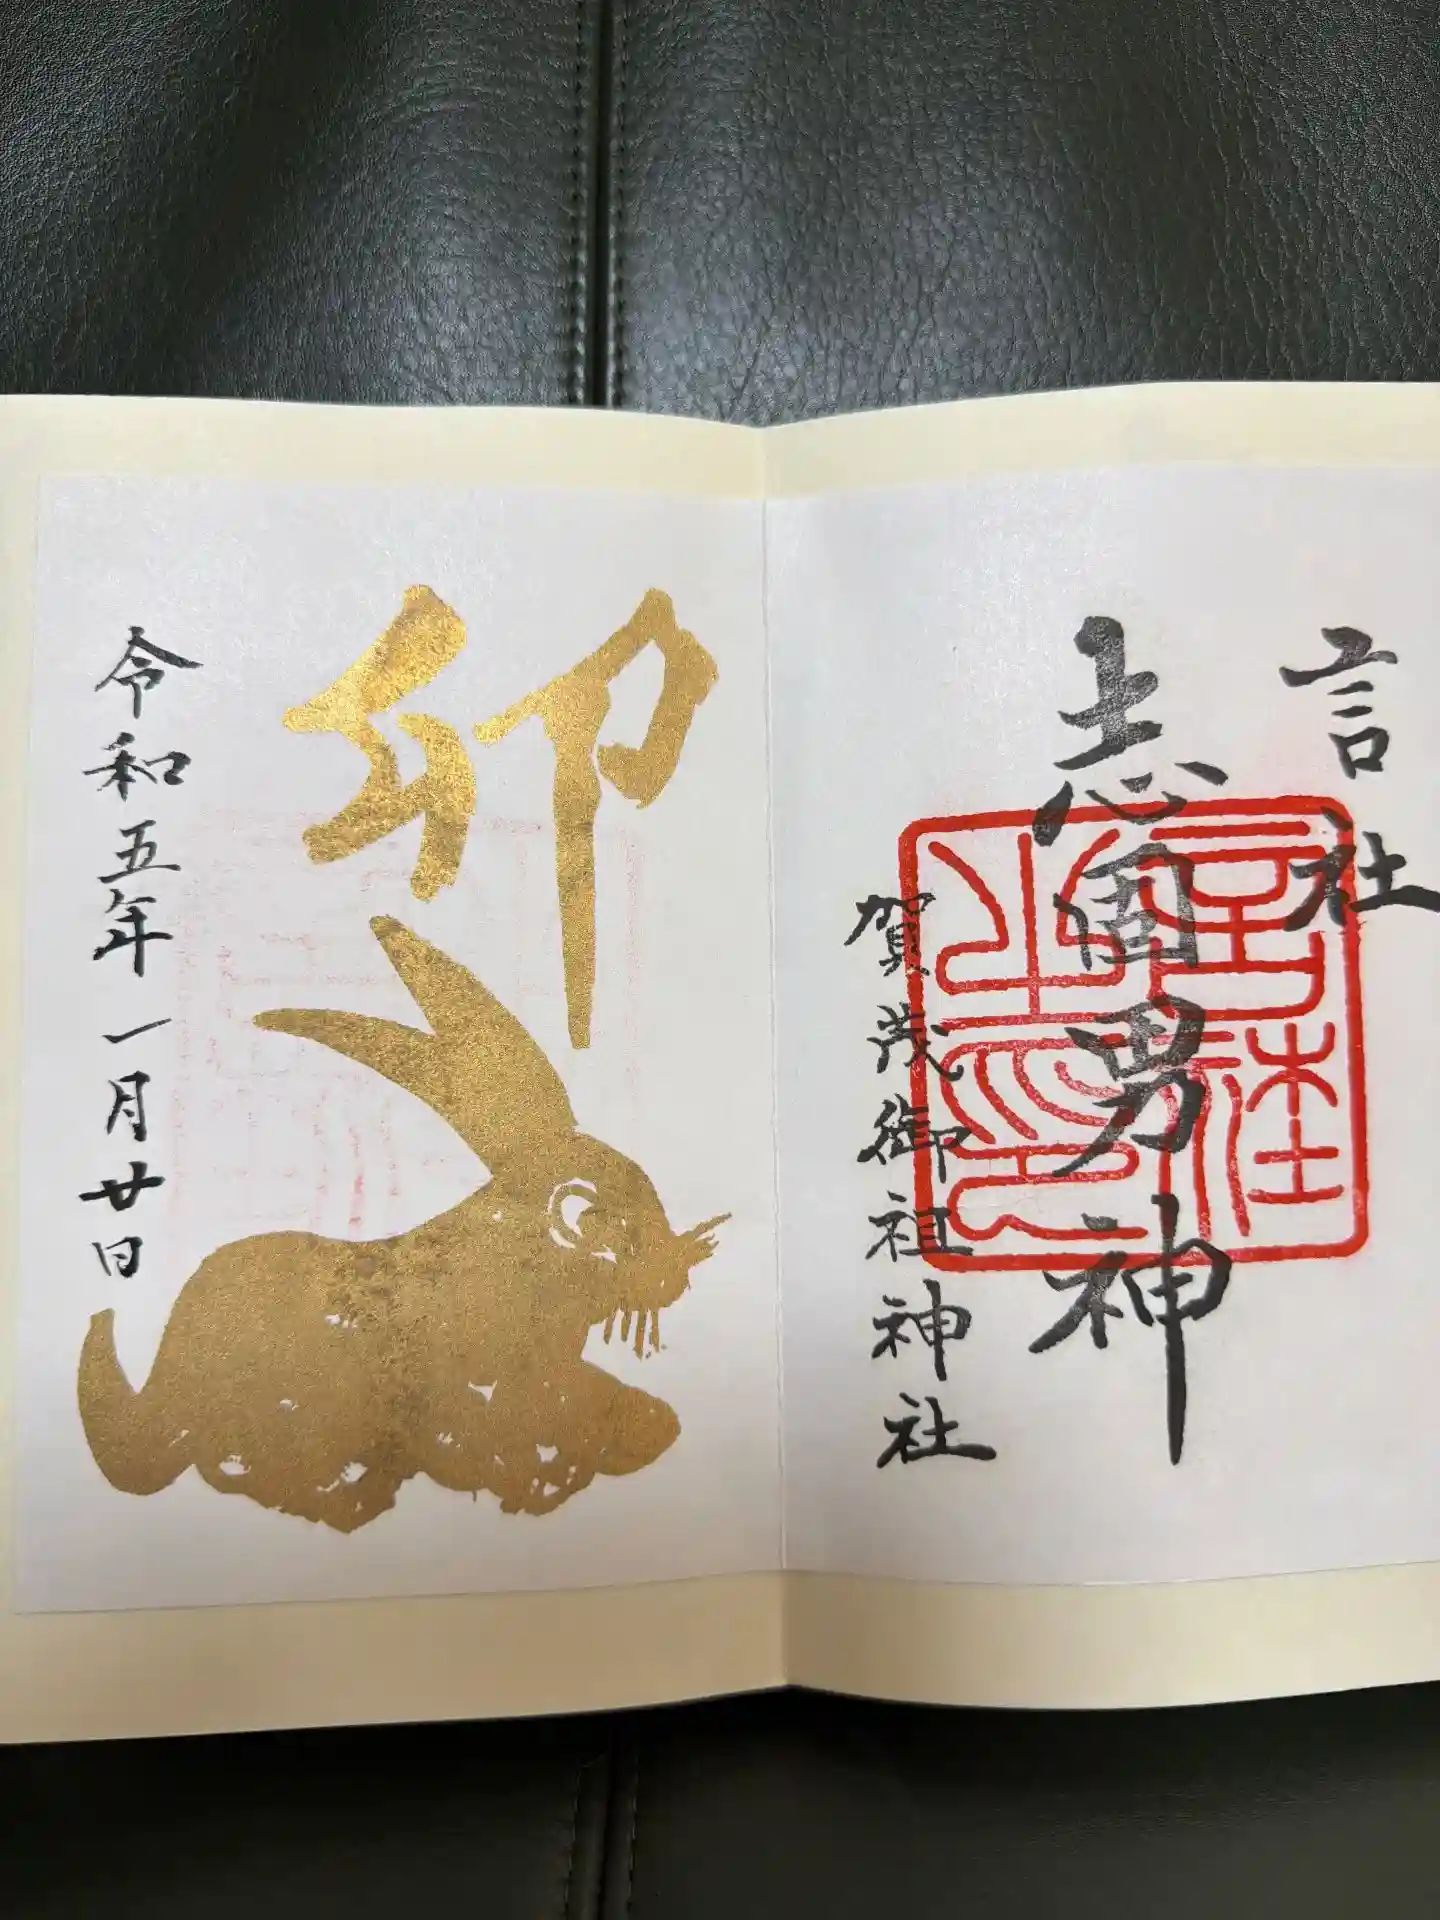 言社
志固男神
賀茂御祖神社
卯
令和五年一月廿日
言社之印